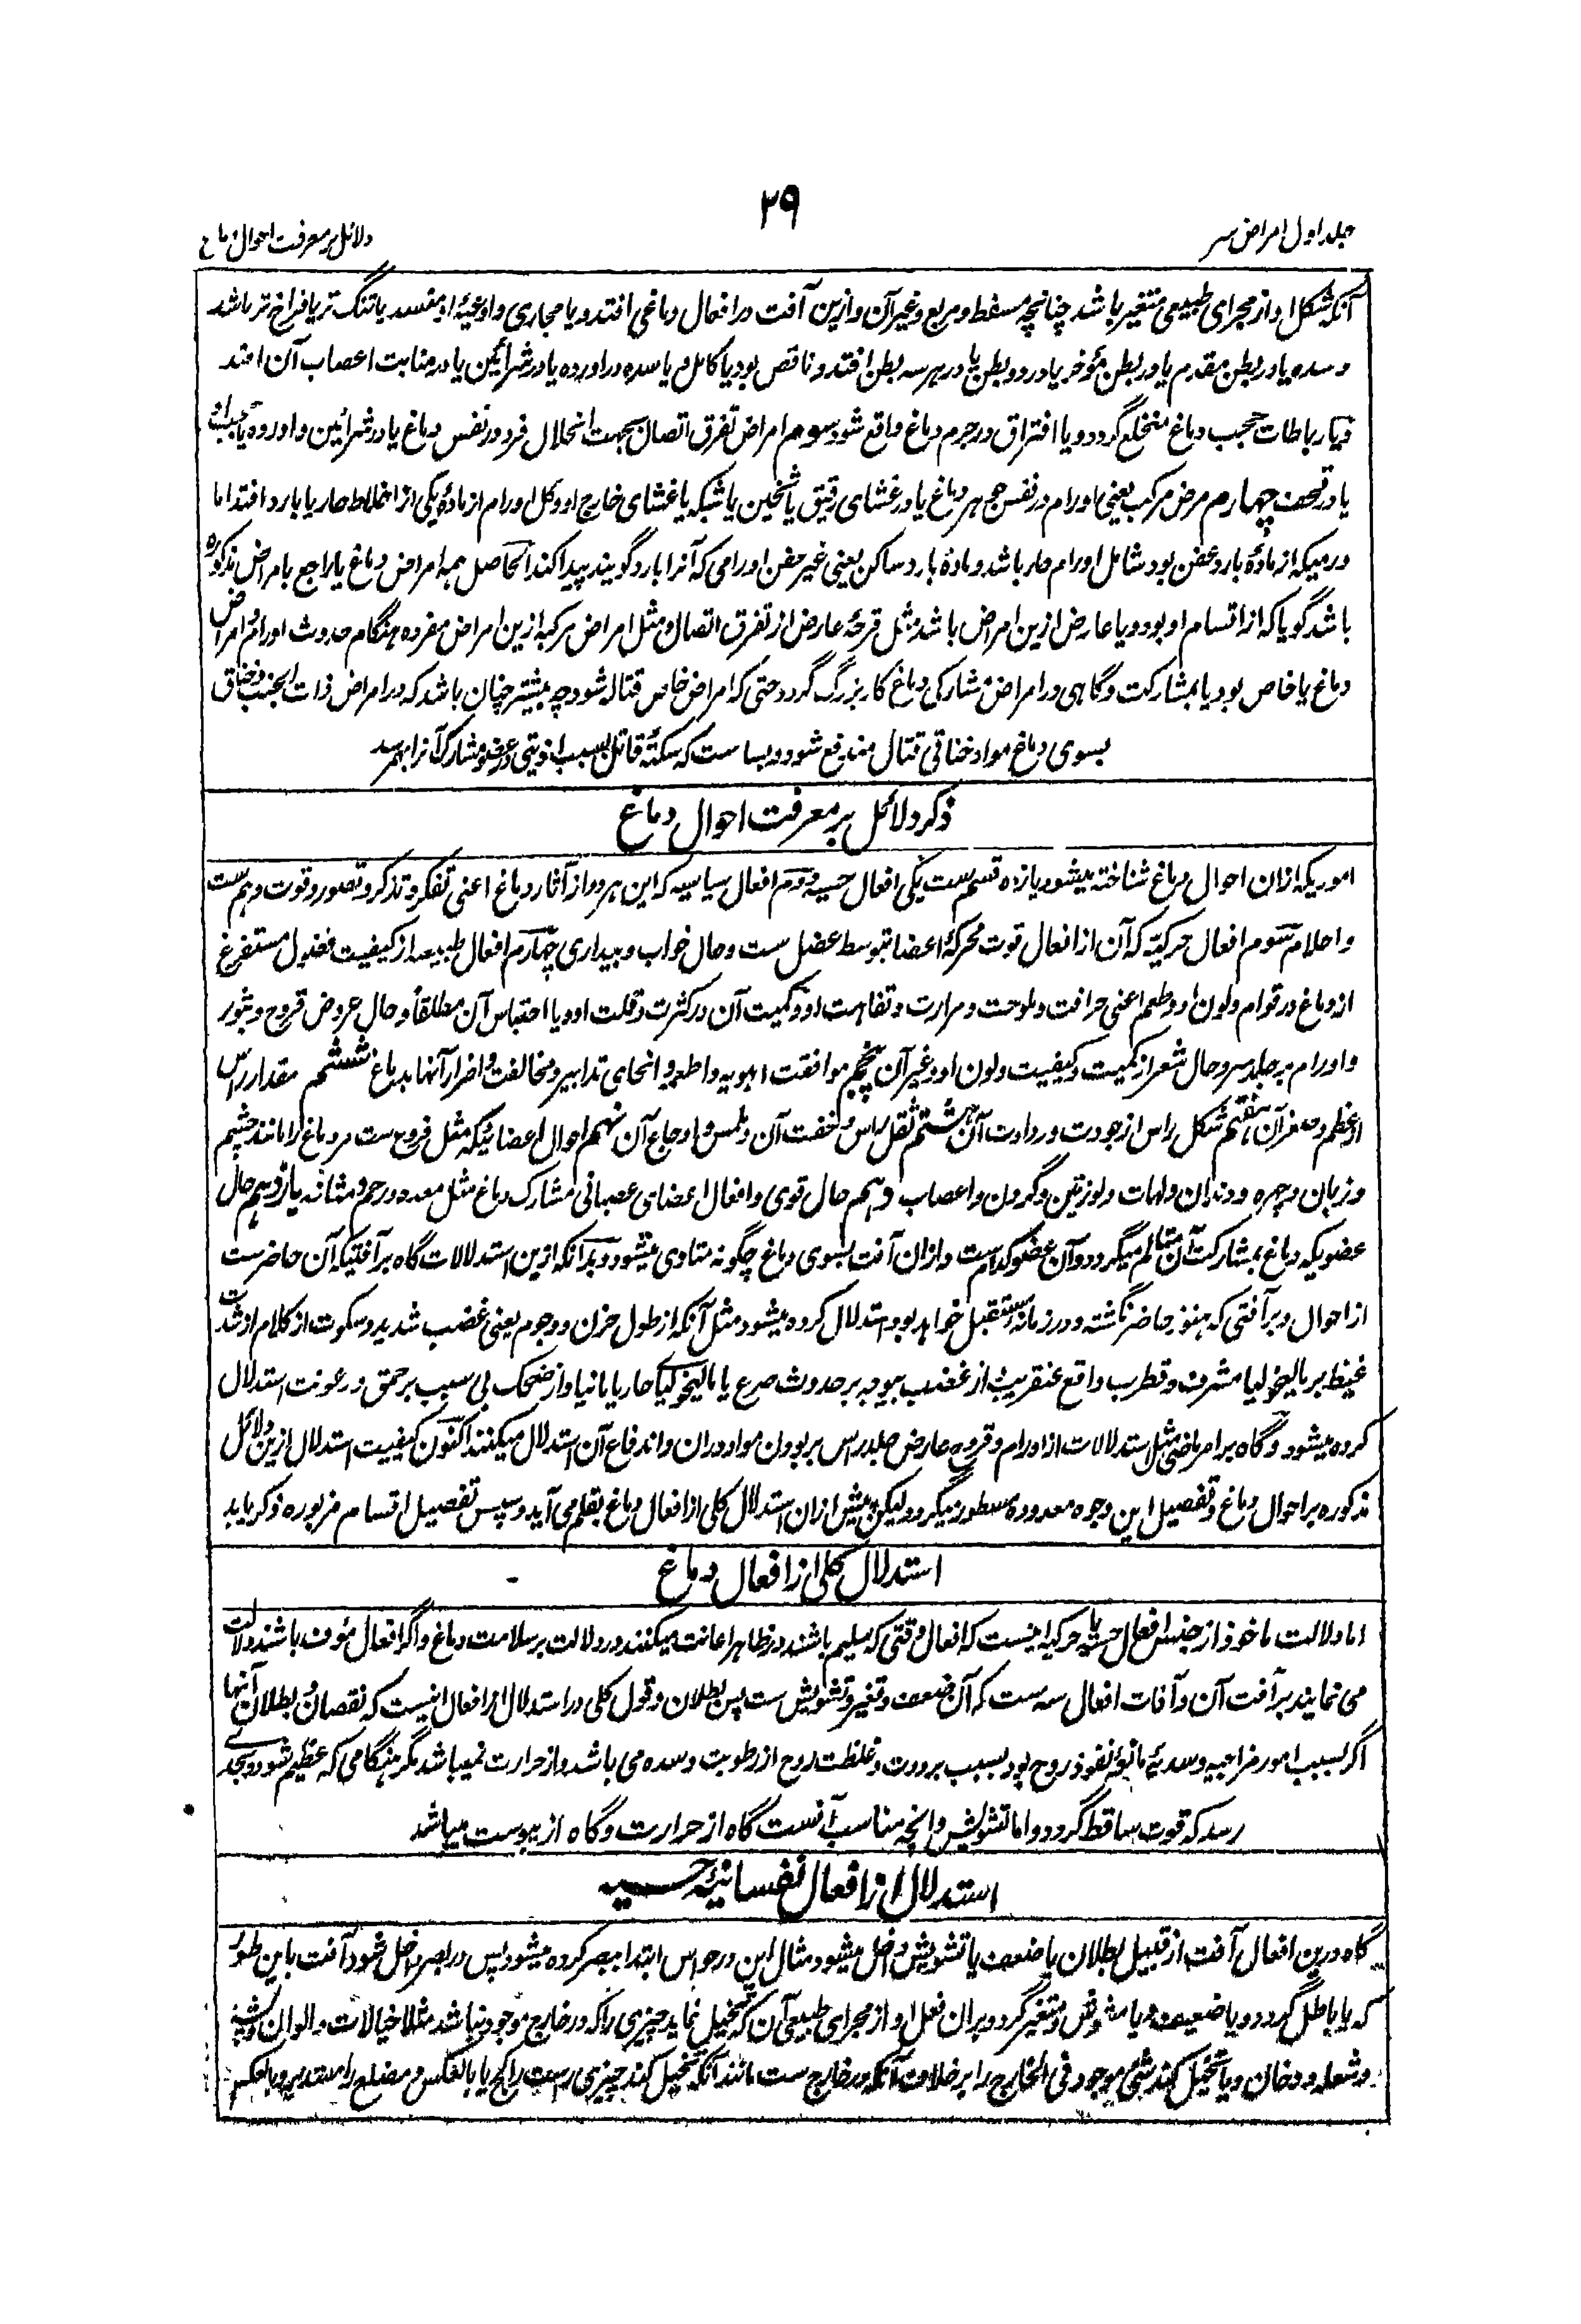 ۲۹
جلد اول امراض سر
دلائل بر معرفت احوال دماغ
آنکه شکل او از مجرای طبیعی متغیر باشد چنانچه مسفط و مربع و غیر آن و ازین آفت در افعال دماغی افتد و یا مجاری و اوعیهٔ او مفسد یا تنگ تر یا فراخ تر باشد
و سده یا در بطن مقدم یا در بطن مؤخر یا در دو بطن یا در هر سه بطن افتد و ناقص بود یا کامل و یا سده در اورده یا در شرائین یا در منابت اعصاب آن افتد
و یا رباطات حجب دماغ منخلع گردد و یا افتراق در جرم دماغ واقع شود سوم امراض تفرق اتصال بجهت انحلال فرد در نفس دماغ یا در شرائین و اورده یا حجاب
یا در قحف چهارم مرض مرکب یعنی اورام در نفس جوهر دماغ یا در غشای رقیق یا ثخین یا شبکه یا غشای خارج او و کل اورام از مادهٔ یکی از اخلاط حار یا بارد افتد اما
ورمیکه از مادهٔ بارد عفن بود شامل اورام حار باشد و مادهٔ بارد ساکن یعنی غیر عفن اورامی که آنرا بارد گویند پیدا کند الحاصل همه امراض دماغ یا راجع بامراض مذکوره
باشد گویا که از اقسام او بود و یا عارض ازین امراض باشد مثل قرحهٔ عارض از تفرق اتصال و مثل امراض مرکبه ازین امراض مفرده هنگام حدوث اورام و امراض
دماغ یا خاص بود یا بمشارکت و گاهی در امراض مشارکی دماغ کار بزرگ گردد حتی که امراض خاص قتاله شود چه بیشتر چنان باشد که در امراض ذات الجنب و خناق
بسوی دماغ مواد خناقی قتال مندفع شود و بسا ست که سکتهٔ قاتل بسبب اذیتی در عضو مشارک آنرا بهم رسد
ذکر دلائل بر معرفت احوال دماغ
اموریکه ازان احوال دماغ شناخته میشود یازده قسم ست یکی افعال حسیه و دوم افعال سیاسیه که این هر دو از آثار دماغ اعنی تفکر و تذکر و تصور و قوت وهم ست
و احلام سوم افعال حرکیه که آن از افعال قوت محرکهٔ اعضا بتوسط عضل ست و حال خواب و بیداری چهارم افعال طبیعه از کیفیت فضول مستفرغ
از دماغ در قوام و لون او و طعم اعنی حرافت و ملوحت و مرارت و تفاهت او و کمیت آن در کثرت و قلت او و یا احتباس آن مطلقاً و حال عروض قروح و بثور
و اورام بر جلد سر و حال شعر از کمیت و کیفیت و لون او و غیر آن پنجم موافقت اهویه و اطعمه و انحای تدابیر و مخالفت و اضرار آنها بدماغ ششم مقدار راس
از عظم و صغر آن هفتم شکل راس از جودت و رداءت آن هشتم ثقل راس و خفت آن و ملمس و اوجاع آن نهم احوال اعضائیکه مثل فروع ست مر دماغ را مانند چشم
و زبان و چهره و دندان و لهات و لوزتین و گردن و اعصاب دهم حال قوی و افعال اعضای عصبانی مشارک دماغ مثل معده و رحم و مثانه یازدهم حال
عضویکه دماغ بمشارکت آن متالم میگردد و آن عضو کدام ست و ازان آفت بسوی دماغ چگونه متادی میشود و بدانکه ازین استدلالات گاه بر آفتیکه آن حاضر ست
از احوال و بر آفتی که هنوز حاضر نگشته و در زمانهٔ مستقبل خواهد بود استدلال کرده میشود مثل آنکه از طول حزن و وجوم یعنی غضب شدید و سکوت از کلام از شدت
غیظ بر مالیخولیا مشرف و قطرب واقع عنقریب از غضب بیوجه بر حدوث صرع یا مالیخولیای حار یا مانیا و از ضحک بی سبب بر حمق و رعونت استدلال
کرده میشود و گاه بر امر ماضی مثل استدلالات از اورام و قروح عارض جلد راس بر بودن مواد دران و اندفاع آن استدلال میکنند اکنون کیفیت استدلال ازین دلائل
مذکوره بر احوال دماغ و تفصیل این وجوه معدوده مسطور میگردد و لیکن پیش ازان استدلال کلی از افعال دماغ بقلم می آید و سپس تفصیل اقسام مزبوره ذکر یابد
استدلال کلی از افعال دماغ
اما دلالت ماخوذ از جنس افعال حسیه یا حرکیه اینست که افعال وقتی که سلیم باشند در ظاهر اعانت میکنند در دلالت بر سلامت دماغ و اگر افعال مؤف باشند دلالت
می نمایند بر آفت آن و آفات افعال سه ست که آن ضعف و تغیر و تشویش ست پس بطلان و قول کلی در استدلال از افعال اینست که نقصان و بطلان آنها
اگر بسبب امور مزاجیه و سدیهٔ مانعهٔ نفوذ روح بود بسبب برودت و غلظت روح از رطوبت و سده می باشد و از حرارت نمیباشد مگر هنگامی که عظیم شود و بحدی
رسد که قوت ساقط گردد و اما تشویش و آنچه مناسب آنست گاه از حرارت و گاه از یبوست میباشد
استدلال از افعال نفسانیهٔ حسیه
گاه درین افعال آفت از قبیل بطلان یا ضعف یا تشویش داخل میشود مثال این در حواس ابتدا ببصر کرده میشود پس در بصر داخل شود آفت باین طور
که یا باطل گردد و یا ضعیف و یا مشوش و متغیر گردد بران فعل او از مجرای طبیعی آن که تخیل نماید چیزی را که در خارج موجود نباشد مثلا خیالات و الوان و پشه
و شعله و دخان و یا تخیل کند شی موجود فی الخارج را بر خلاف آنکه در خارج ست مانند آنکه تخیل کند چیزی راست را کج یا بالعکس و مضلع را مستدیر و بالعکس